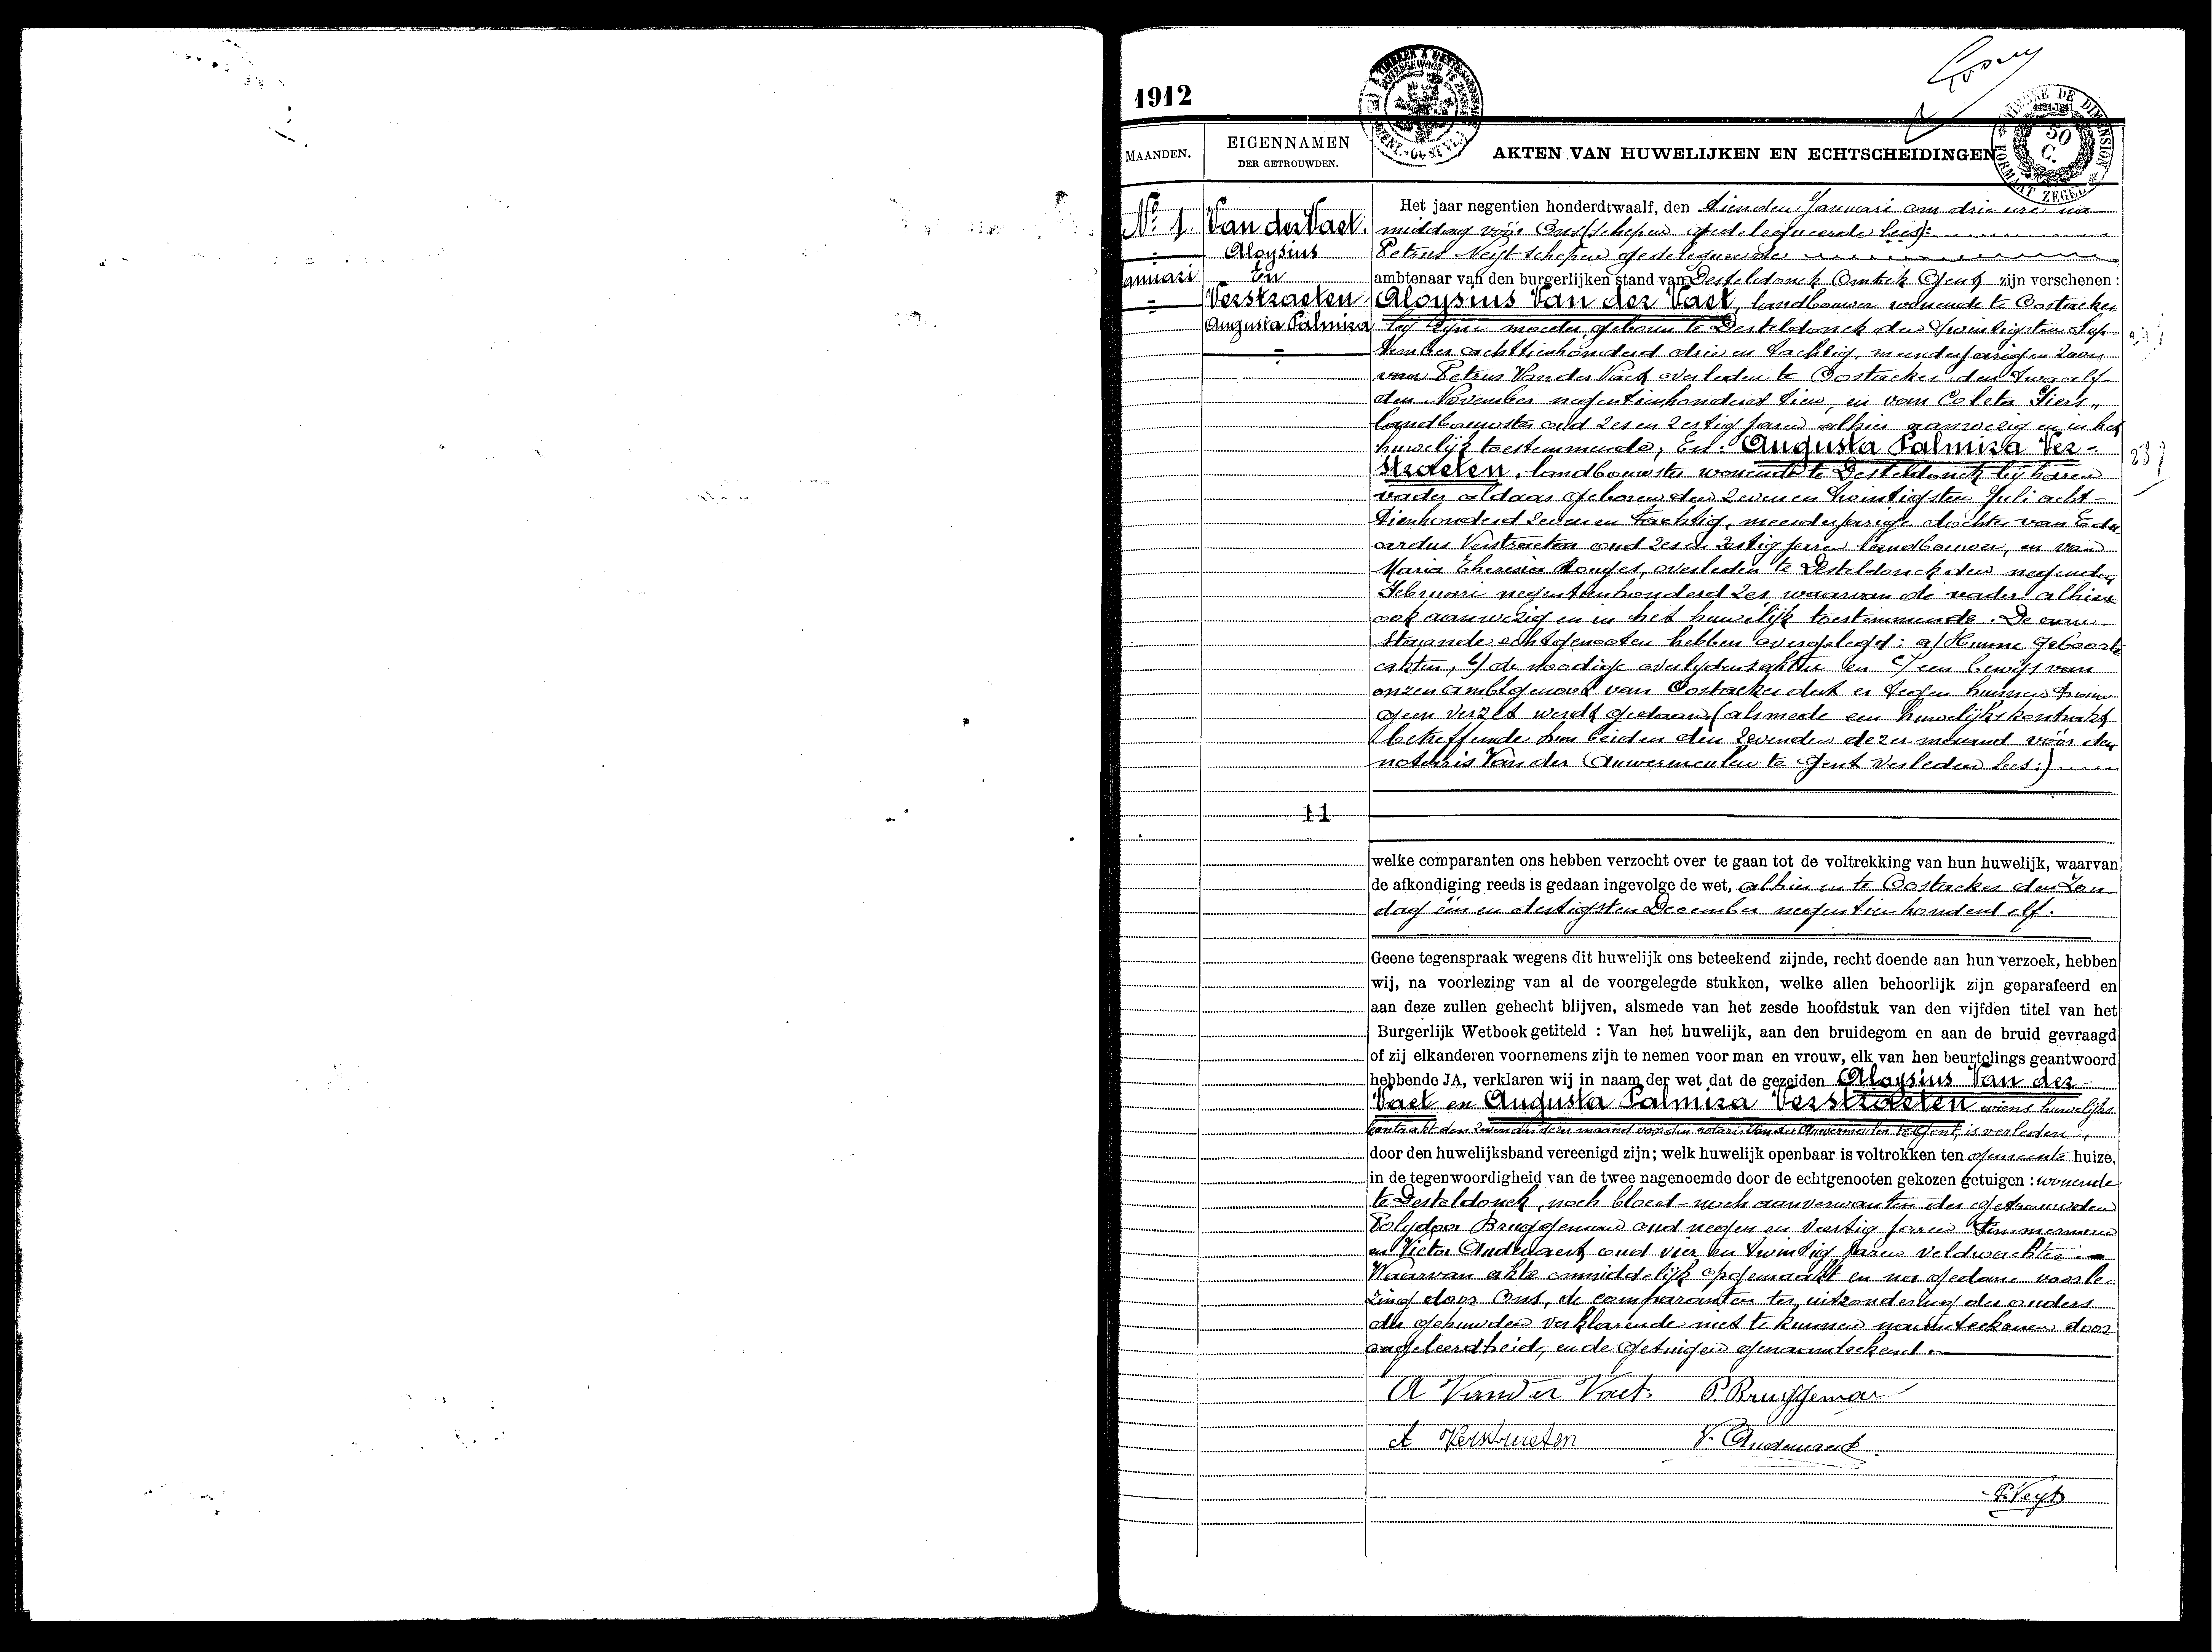 1912
MAANDEN.
EIGENNAMEN
DER GETROUWDEN.
AKTEN VAN HUWELIJKEN EN ECHTSCHEIDINGEN
50
C.
FORMAAT ZEGEL
Nº 1.
anuari
Van der Vaet.
Aloysius
En
Verstraeten
Augusta Palmira
Het jaar negentien honderdtwaalf, den tienden Januari om drie ure na
middag vóór Ons (schepen gedelegueerde lees):
Petrus Neyt schepen gedelegueerde
ambtenaar van den burgerlijken stand van Desteldonck Omtrek Gent zijn verschenen :
Aloysius Van der Vaet, landbouwer wonende te Oostacker
bij zijne moeder geboren te Desteldonck den twintigsten Sep-
tember achttienhonderd drie en tachtig, meerderjarigen zoon
van Petrus Van der Vaet overleden te Oostacker den twaalf-
den November negentienhonderd tien, en van Coleta Siers,
landbouwster oud zes en zestig jaren alhier aanwezig en in het
huwelijk toestemmende; En: Augusta Palmira Ver-
straeten, landbouwster wonende te Desteldonck bij haren
vader aldaar geboren den zeven en twintigsten Juli acht-
tienhonderd zeven en tachtig, meerderjarige dochter van Edu-
ardus Verstraeten oud zes en zestig jaren landbouwer, en van
Maria Theresia Rouges, overleden te Desteldonck den negenden
Februari negentienhonderd zes waarvan de vader alhier
ook aanwezig en in het huwelijk toestemmende. De aan-
staande echtgenooten hebben overgelegd: a/ Hunne geboorte
akten, b/ de noodige overlydensakten en c/ een bewijs van
onzen ambtgenoot van Oostacker dat er tegen hunnen trouw
geen verzet werdt gedaan (alsmede een huwelijkskontrakt
betreffende hun beiden den zevenden dezer maand vóór den
notaris Van der Auwermeulen te Gent verleden lees:)
11
welke comparanten ons hebben verzocht over te gaan tot de voltrekking van hun huwelijk, waarvan
de afkondiging reeds is gedaan ingevolge de wet, alhier en te Oostacker den Zon
dag één en dertigsten December negentienhonderd elf.
Geene tegenspraak wegens dit huwelijk ons beteekend zijnde, recht doende aan hun verzoek, hebben
wij, na voorlezing van al de voorgelegde stukken, welke allen behoorlijk zijn geparafeerd en
aan deze zullen gehecht blijven, alsmede van het zesde hoofdstuk van den vijfden titel van het
Burgerlijk Wetboek getiteld : Van het huwelijk, aan den bruidegom en aan de bruid gevraagd
of zij elkanderen voornemens zijn te nemen voor man en vrouw, elk van hen beurtelings geantwoord
hebbende JA, verklaren wij in naam der wet dat de gezeiden Aloysius Van der
Vaet en Augusta Palmira Verstraeten wiens huwelijks
contrakt den zevenden dezer maand voor den notaris Van der Auwermeulen te Gent, is verleden,
door den huwelijksband vereenigd zijn; welk huwelijk openbaar is voltrokken ten gemeente huize,
in de tegenwoordigheid van de twee nagenoemde door de echtgenooten gekozen getuigen : wonende
te Desteldonck, noch bloed- noch aanverwanten der getrouwden
Polydoor Bruggeman oud negen en veertig jaren timmerman
en Victor Audenaert oud vier en twintig jaren veldwachter.
Waarvan akte onmiddelijk opgemaakt en na gedane voorle-
zing door Ons, de comparanten ter uitzondering der ouders
der gehuwden verklarende niet te kunnen naamteekenen door
ongeleerdheid, en de getuigen genaamteekend.
A Van der Vaet P. Bruggeman
A Verstraeten V. Audenaert
P. Neyt